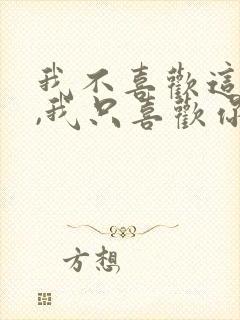 我不喜歡這
,我只喜歡你
方想